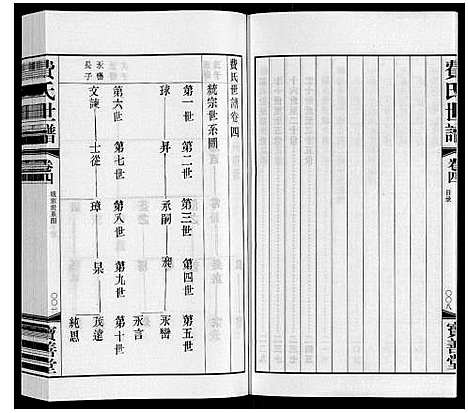 費氏世譜
卷四
目录
〇〇八
寶善堂
費氏世譜卷四
統宗世系圖
第一世 第二世 第三世 第四世 第五世
球 昇
第六世 第七世 第八世 第九世 第十世
長子
文諫 士從 璋 杲 茂遠
純思
費氏世譜
卷四
統宗世系圖
〇〇一
寶善堂